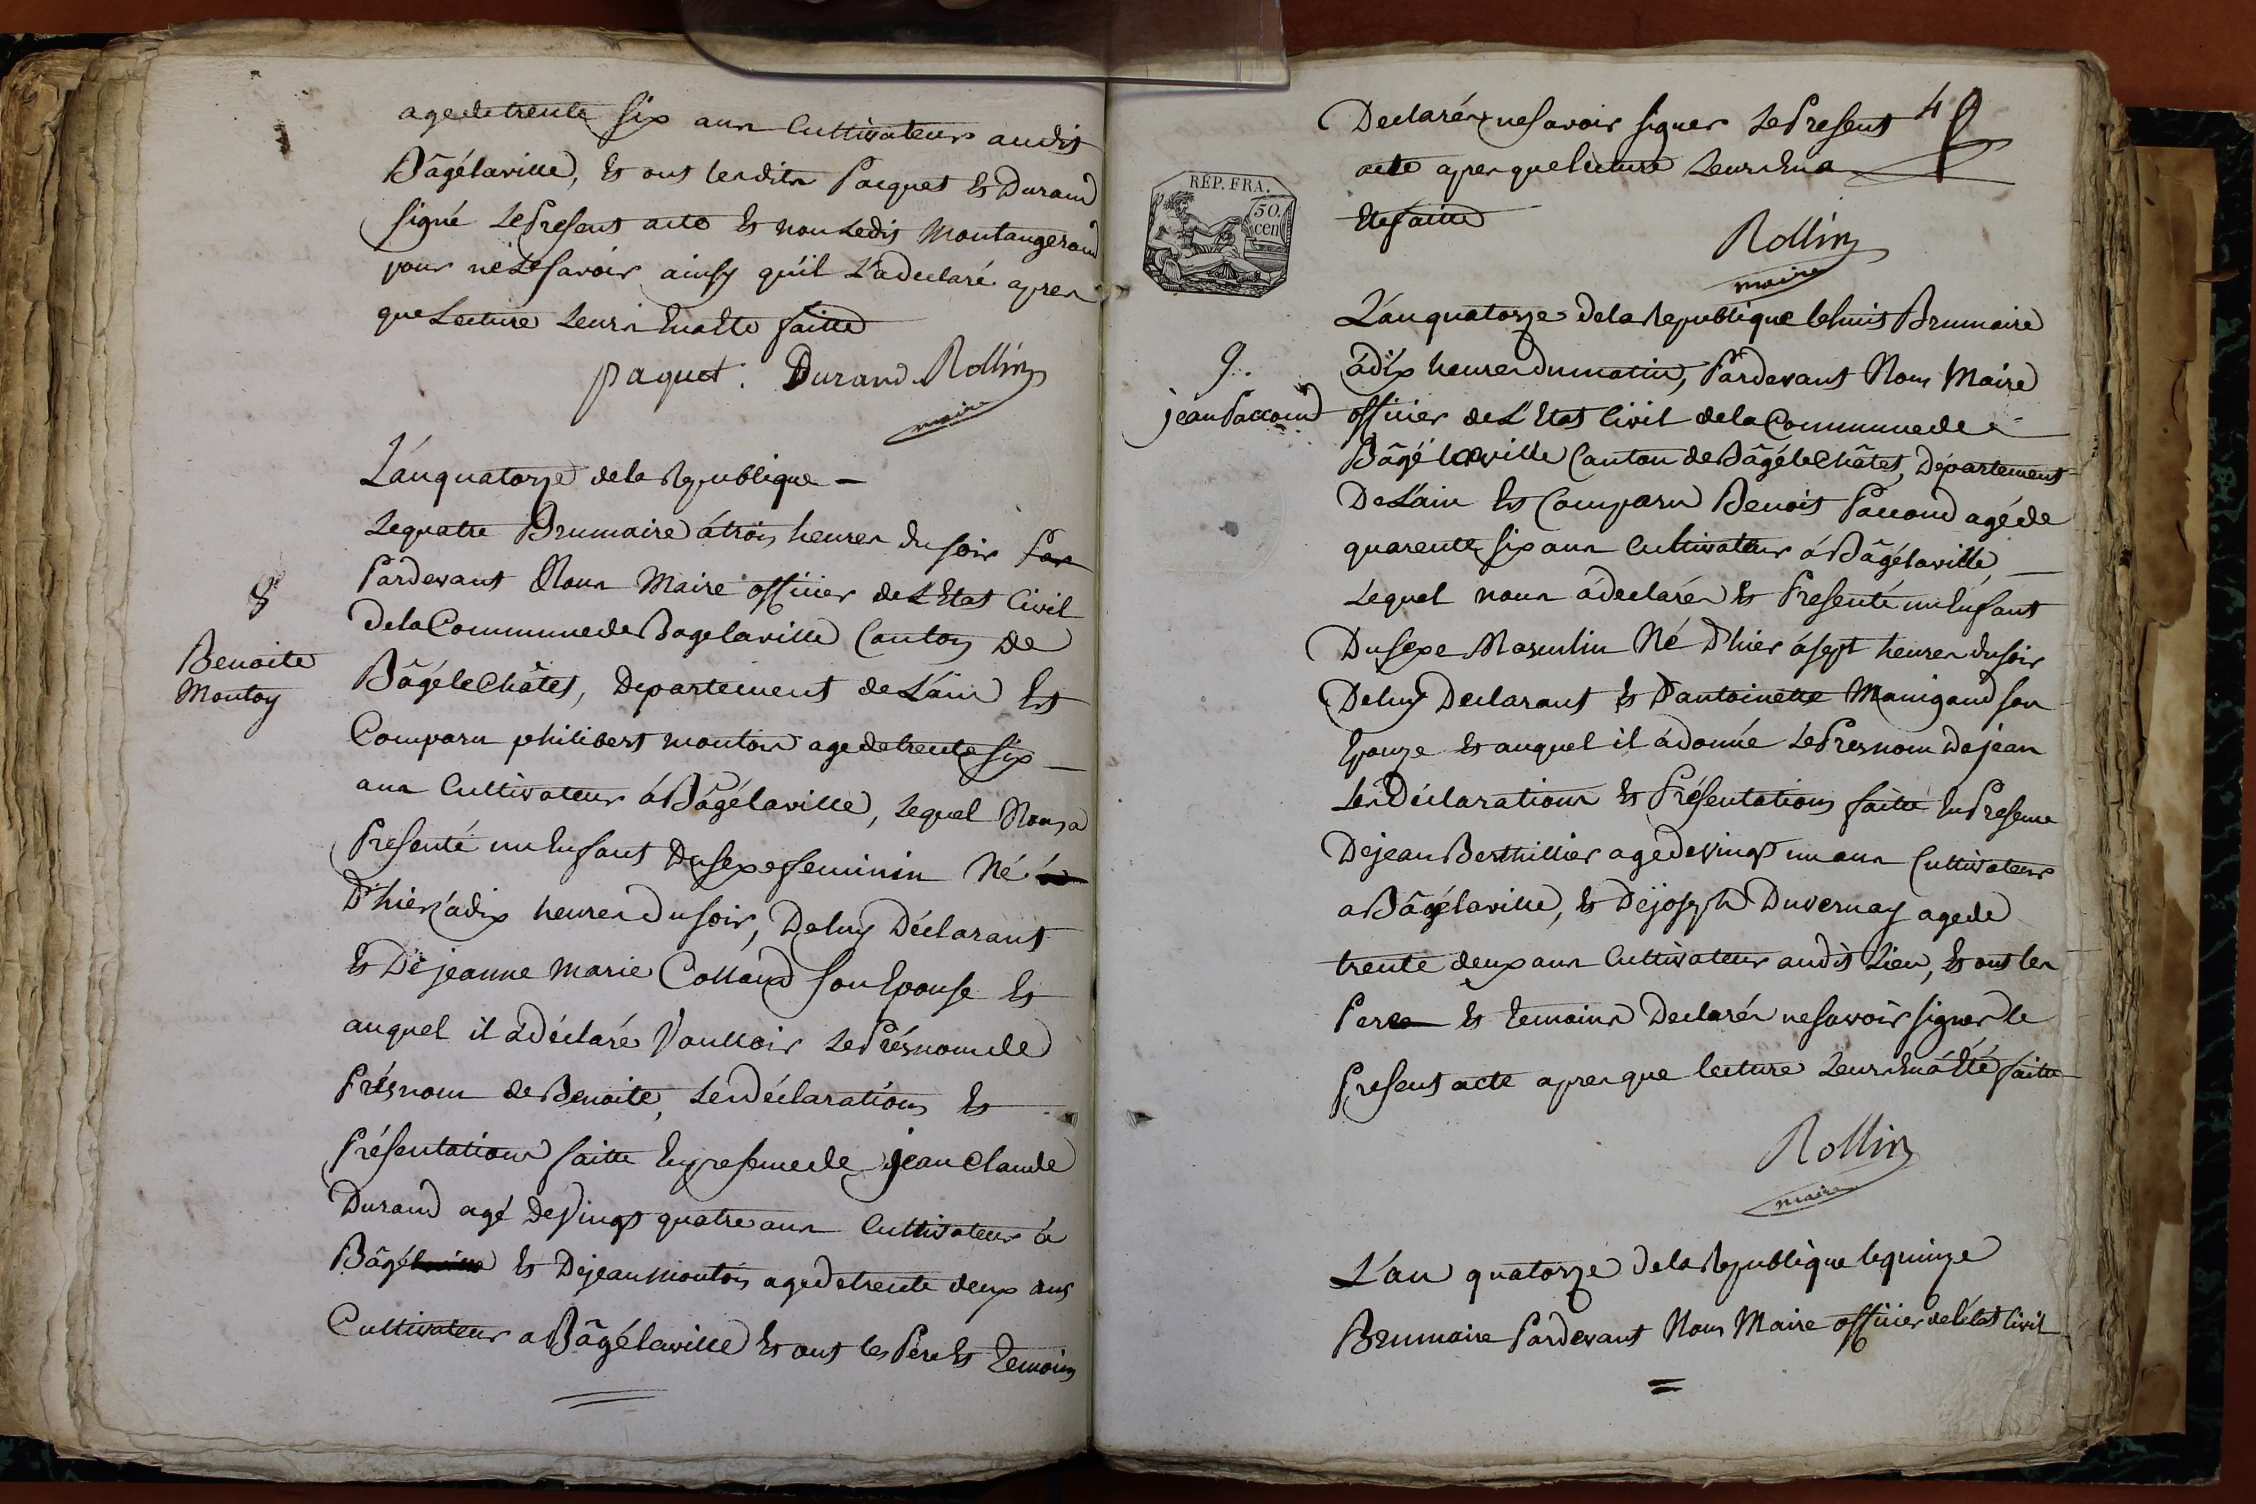 agé de trente six ans Cultivateur audit
Bâgélaville, Et ont lesdits Pacquet Et Durand
signé Le Present acte Et non Ledit Montangerand
pour ne Le savoir ainsy qu'il L'a declaré apres
que Lecture Leurs En a Ete faitte
paquet. Durand Rollin
maire
L'an quatorze de la Republique
Le quatre Brumaire á trois heures du soir Par
Pardevant Nous Maire officier de L'Etat Civil
8
De la Commune de Bagelaville Canton de
Benoite
Montoy
Bâgé le Châtel, Departement de L'ain Est
Comparu philibert monton agé de trente six
ans Cultivateur á Bâgélaville, Lequel Nous a
Presenté un Enfant Du sexe feminin Né
D'hier á dix heures Du soir, De luy Déclarant
Et De jeanne Marie Colland son Epouse Et
auquel il á Déclaré Vouttoir Le Présnom de
Présnom de Benoite, Les déclarations Et
Présentations faitte En presence de jean Claude
Durand agé de Vingt quatre ans Cultivateur á
Bâgé Et De jean monton agé de trente deux ans
Cultivateur a Bâgélaville Et ont les Pere Et Temoins
Declarés ne savoir signer Le Present 4
acte apres que lecture Leurs En a
Ete faitte
RÉP. FRA.
50.
cen
Rollin
maire
L'an quatorze de la Republique le huit Brumaire
9.
á dix heures du matin, Pardevant Nous Maire
jean Paccoud
officier de L'Etat Civil de la Commune de
Bâgé laville Canton de Bâgé le Châtel, Département
De L'ain Est Comparu Benoit Paccoud agé de
quarente six ans Cultivateur á Bâgélaville,
Lequel nous á declarés Et Presenté un Enfant
Du sexe Masculin Né D'hier á sept heures du soir
De luy Declarant Et D'antoinette Manigand son
Epouze Et auquel il á donné Le Presnom de jean
Les Déclarations Et Présentations faitte En Presence
De jean Berthillier agé de Vingt un ans Cultivateur
a Bâgélaville, Et De joseph Duvernay agé de
trente deux ans Cultivateur audit Lieu, Et ont les
Pere Et Temoins Declarés ne savoir signer le
Present acte apres que lecture Leurs En á Eté faitte
Rollin
maire
L'an quatorze de la Republique le quinze
Brumaire Pardevant Nous Maire officier de l'état Civil